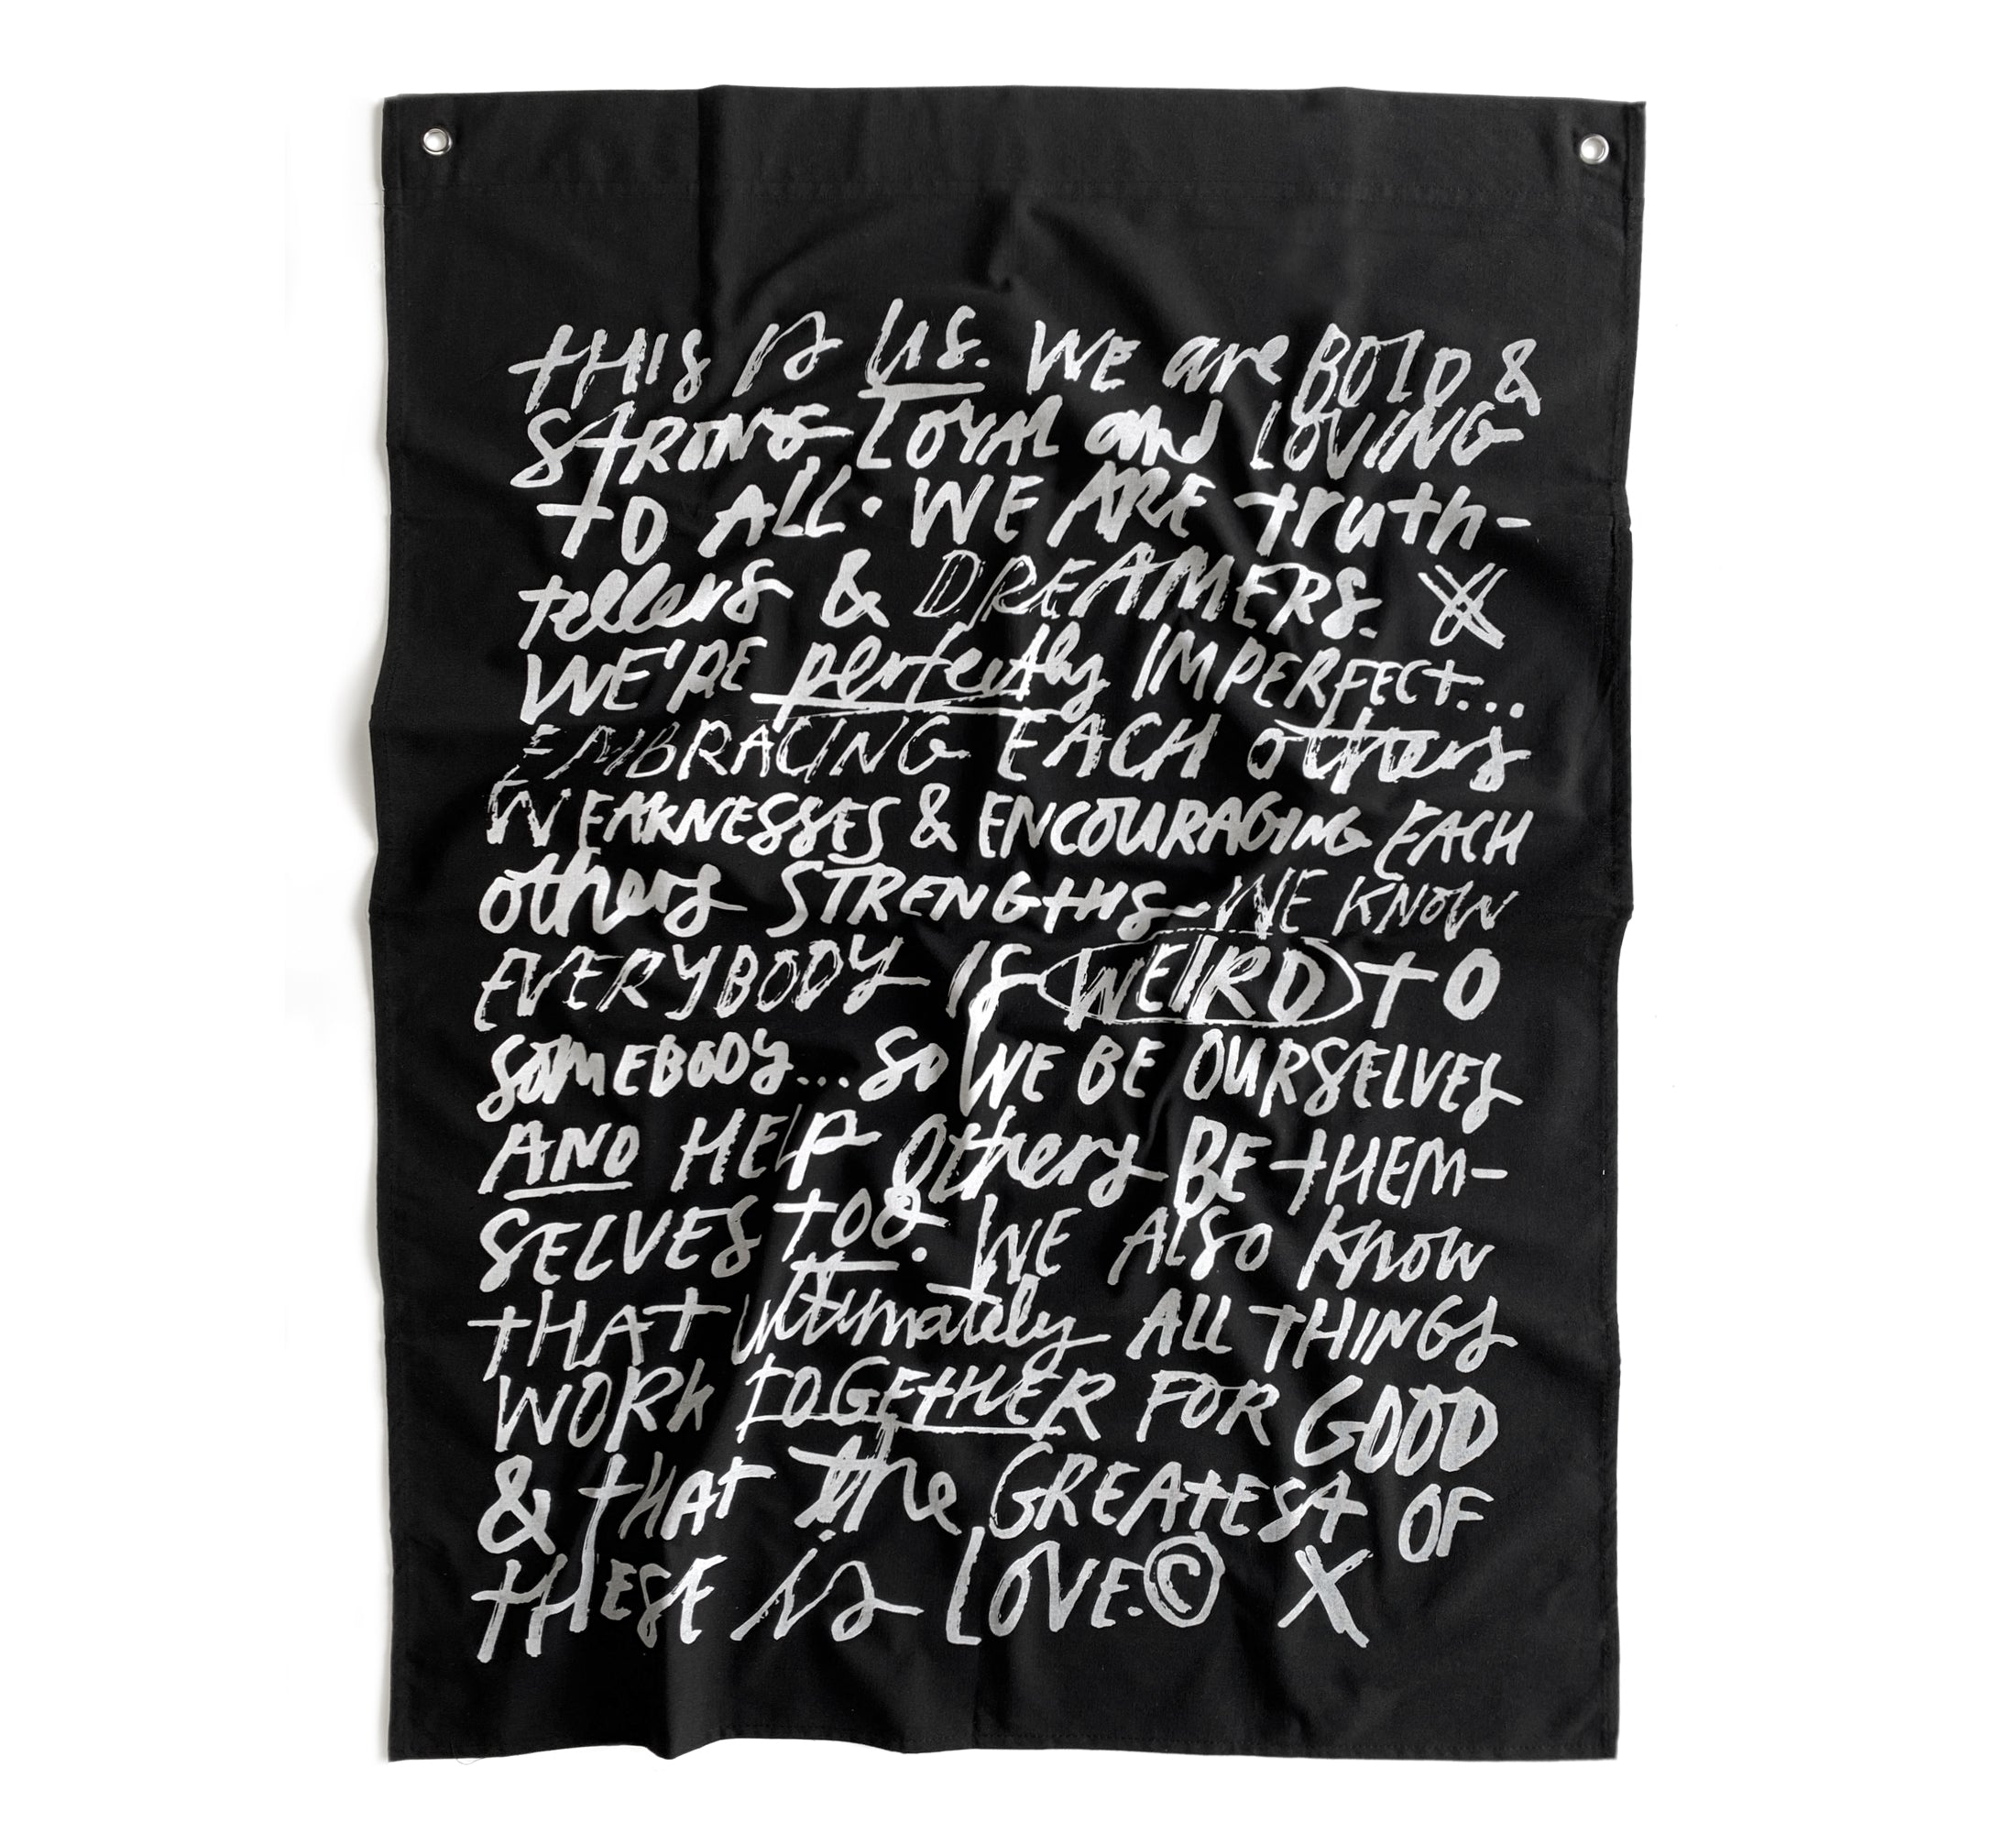 THIS is US. WE are BOLD &
STRONG LOYAL and LOVING
TO ALL. WE ARE truth-
tellers & DREAMERS. X
WE'RE perfectly IMPERFECT...
EMBRACING EACH others
WEAKNESSES & ENCOURAGING EACH
others STRENGTHS - WE KNOW
EVERYBODY IS WEIRD TO
SOMEBODY... SO WE BE OURSELVES
AND HELP others BE THEM-
SELVES TOO. WE ALSO KNOW
THAT ultimately ALL THINGS
WORK TOGETHER FOR GOOD
& THAT the GREATEST OF
THESE is LOVE. © X